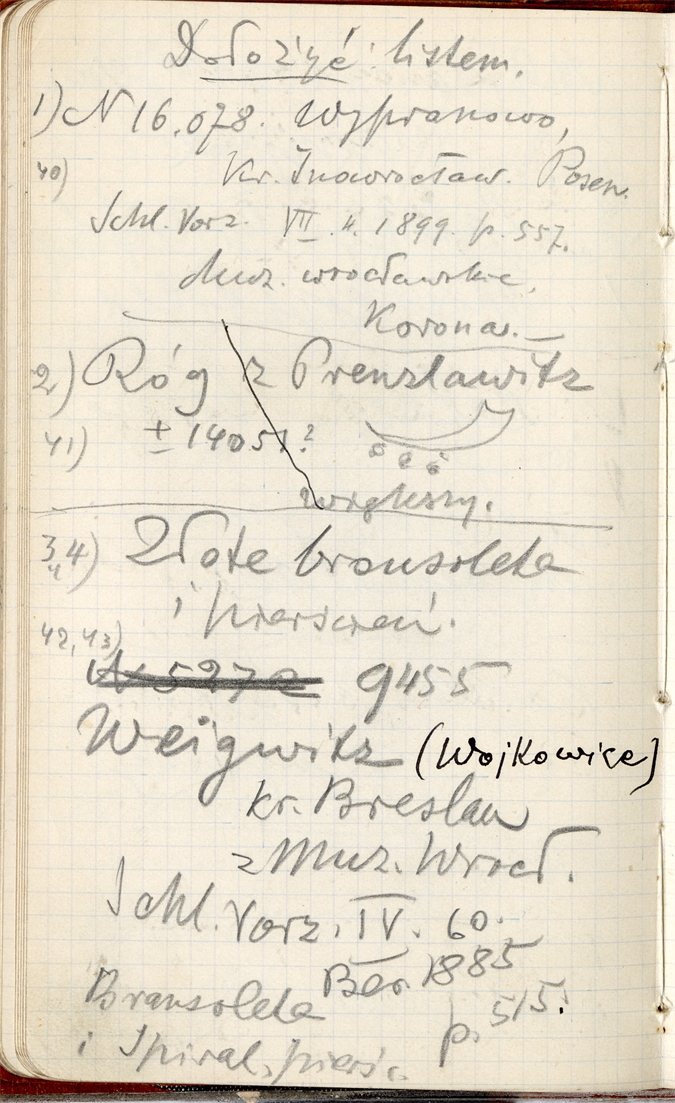 Dołożyć listem.
1) N 16.078. Wypranowo,
40) Kr. Inowrocław. Posen.
Schl. Vorz. VII. 4. 1899. p. 557.
Muz. wrocławskie,
Korona.
2) Róg z Prenzlawitz
41) ± 14051?
większy.
3, 4) Złote bransoleta
i pierścień.
42, 43)
9455
Weigwitz (Wojkowice)
kr. Breslau
z Muz. Wrocł.
Schl. Vorz. IV. 60.
Ber. 1885
Bransoleta p. 515.
i Spiral. pierś.